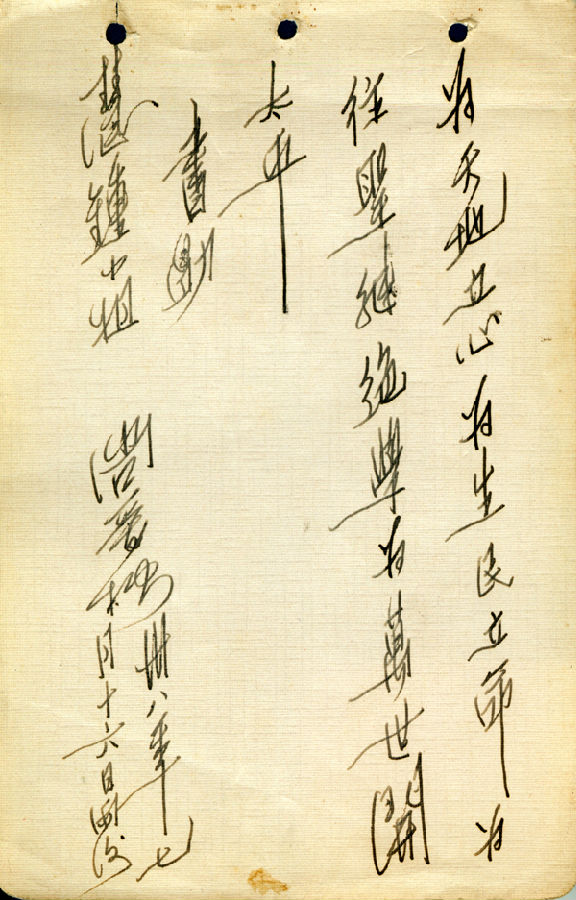 為天地立心為生民立命為
往聖繼絕學為萬世開
太平
書勖
鍾小姐
卅八年七
月十六日